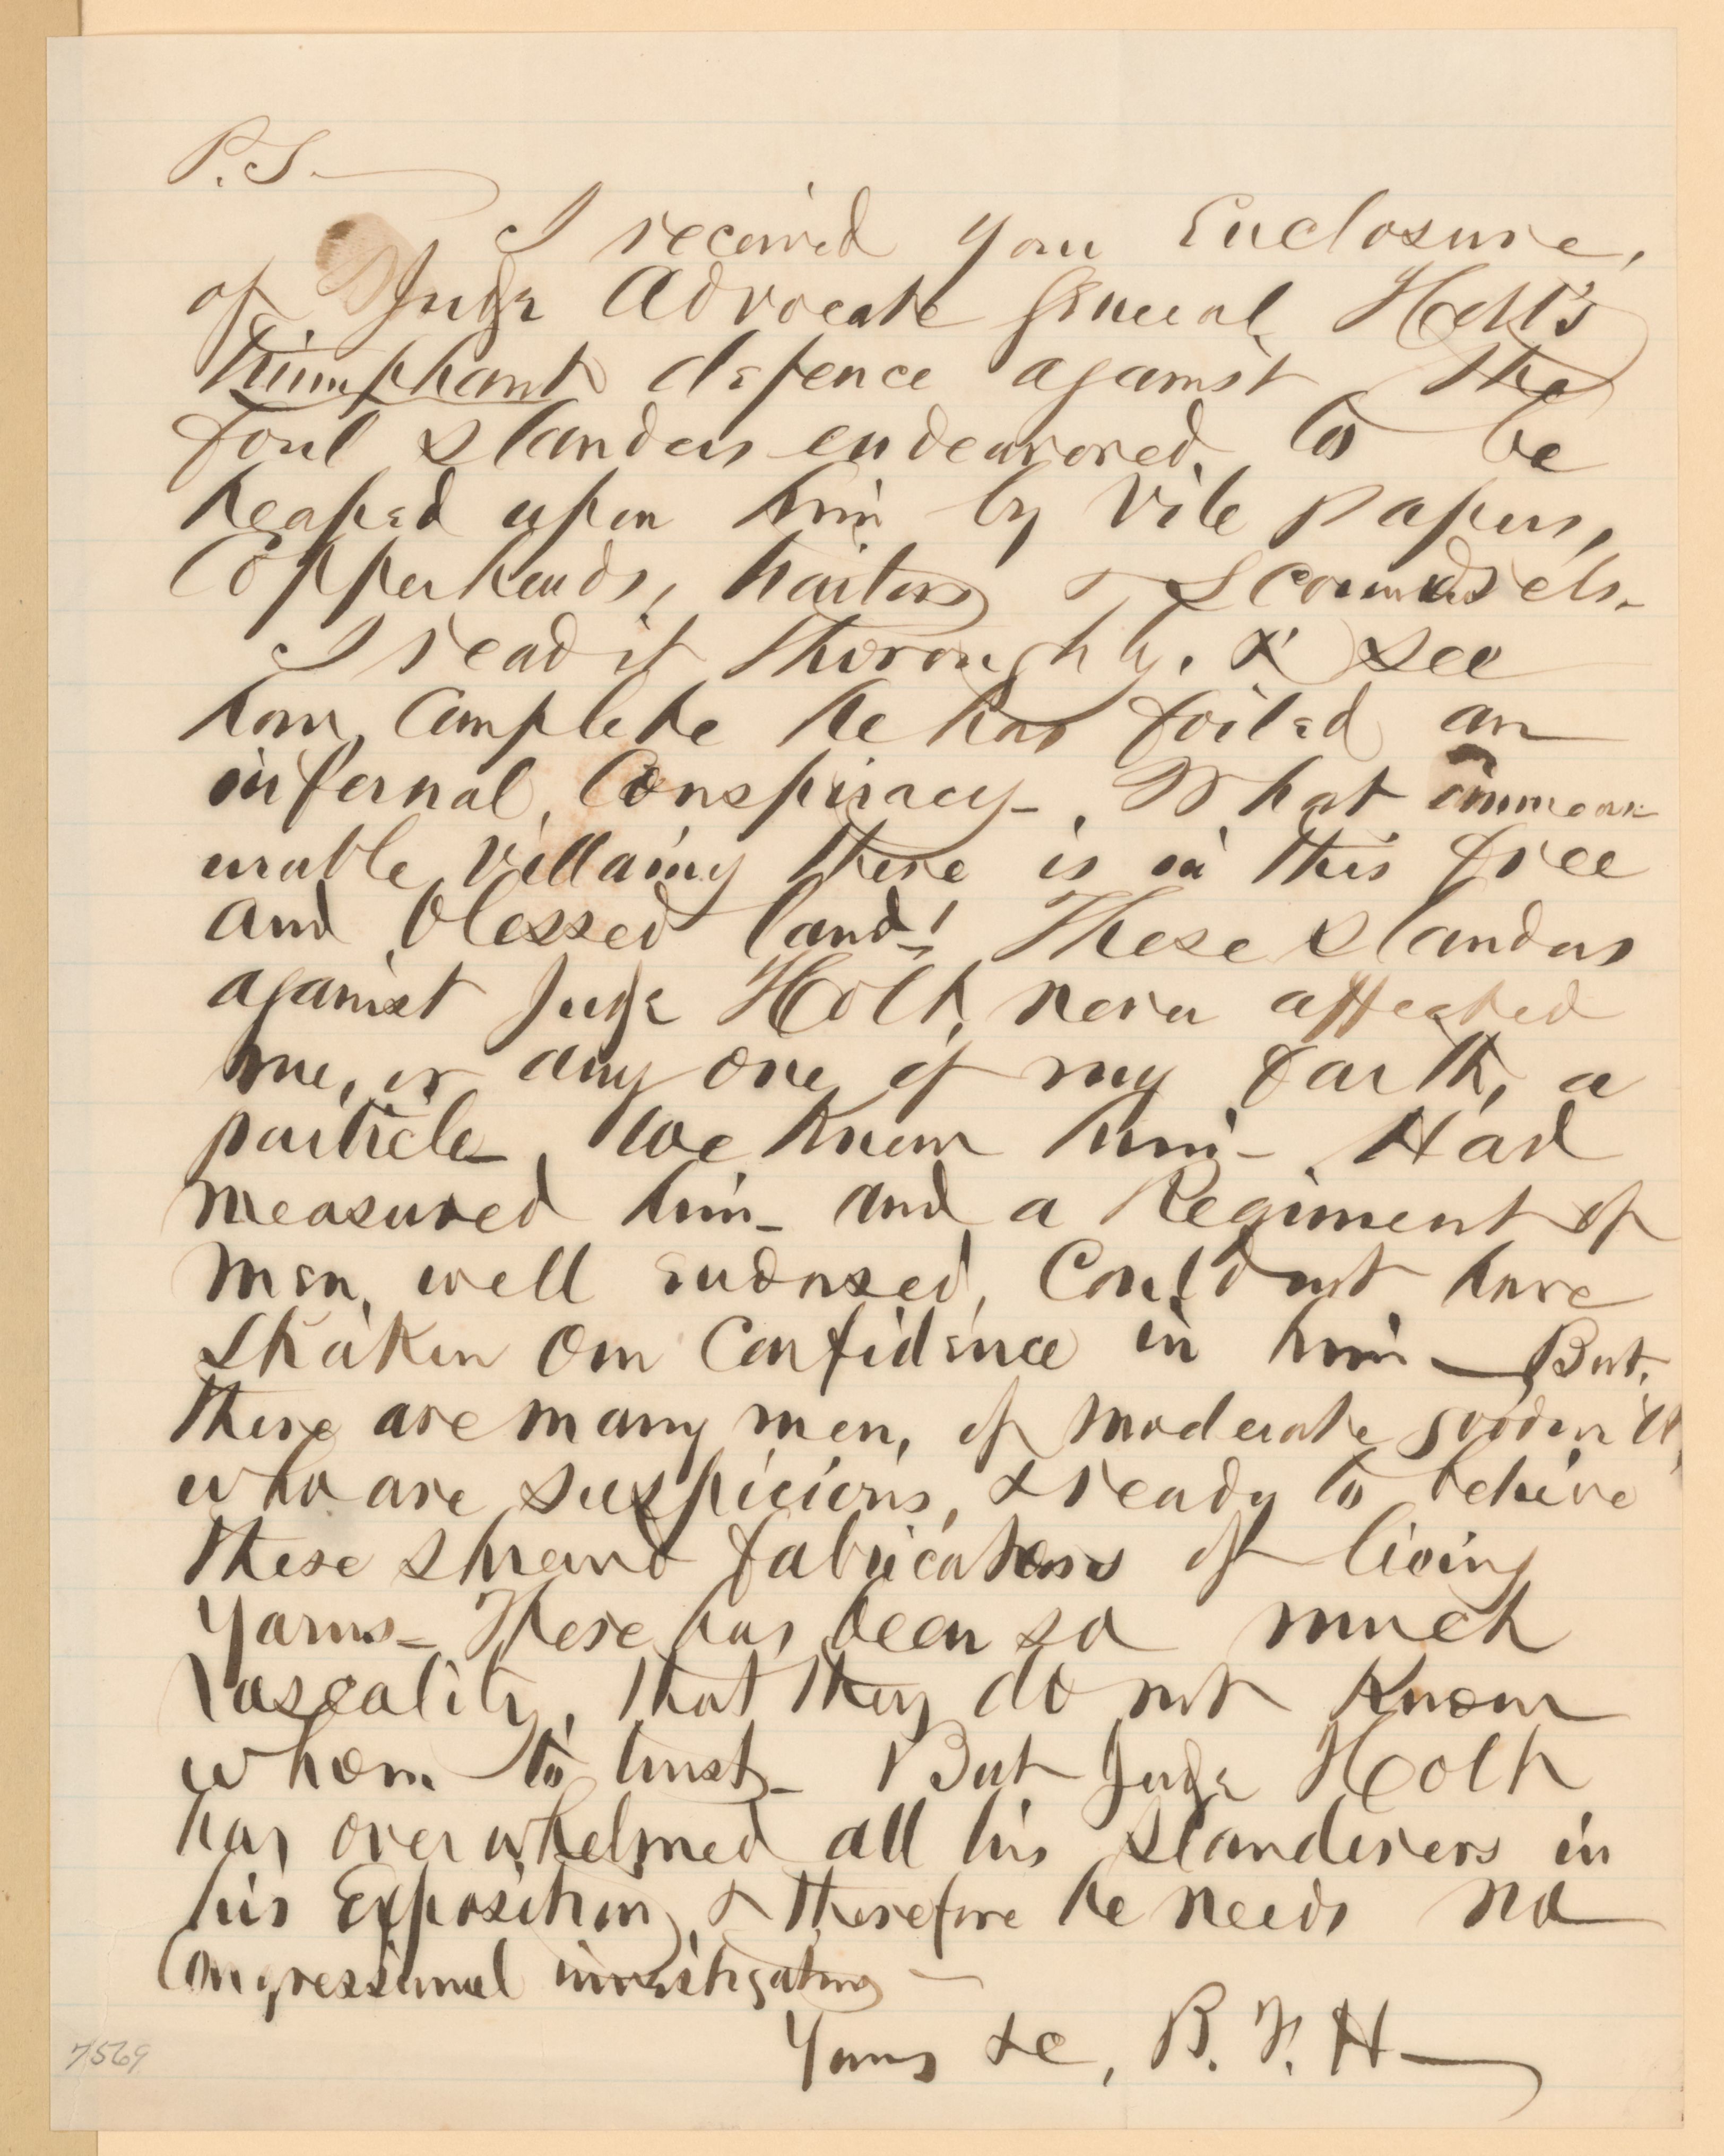 P.S.
I received your Enclosure,
of Judge Advocate General Holt's
triumphant defence against the
foul slanders endeavored to be
heaped upon him by vile papers,
Copperheads, traitors & scoundrels.
I read it thoroughly, & see
how complete he has foiled an
infernal Conspiracy. What immeas
urable villainy there is in this free
and blessed land! These slanders
against Judge Holt, never affected
me, or any one of my faith, a
particle. We knew him. Had
measured him and a Regiment of
men, well endorsed, Could not have
shaken our Confidence in him — But,
there are many men, of moderate
who are suspicious, & ready to believe
these shrewd fabricators of living
yarns. There has been so much
rascality, that they do not know
whom to trust. But Judge Holt
has overwhelmed all his slanderers in
his Exposition, & therefore he needs no
Congressional investigating —
Yours &c, B. F. H
7569